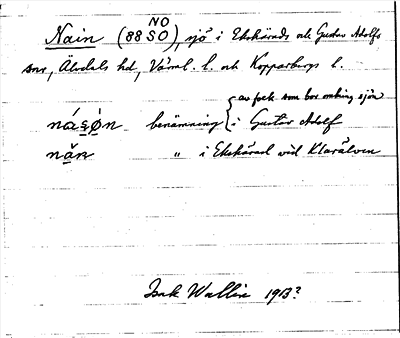 NO
Nain (88 SO), sjö i Ekshärads och Gustav Adolfs
snr, Älvdals hd, Värml. l. och Kopparbergs l.
av folk som bor omkring sjön
násøn benämning { i Gustav Adolf
năn " i Ekshärad vid Klarälven
Isak Wallin 1913?